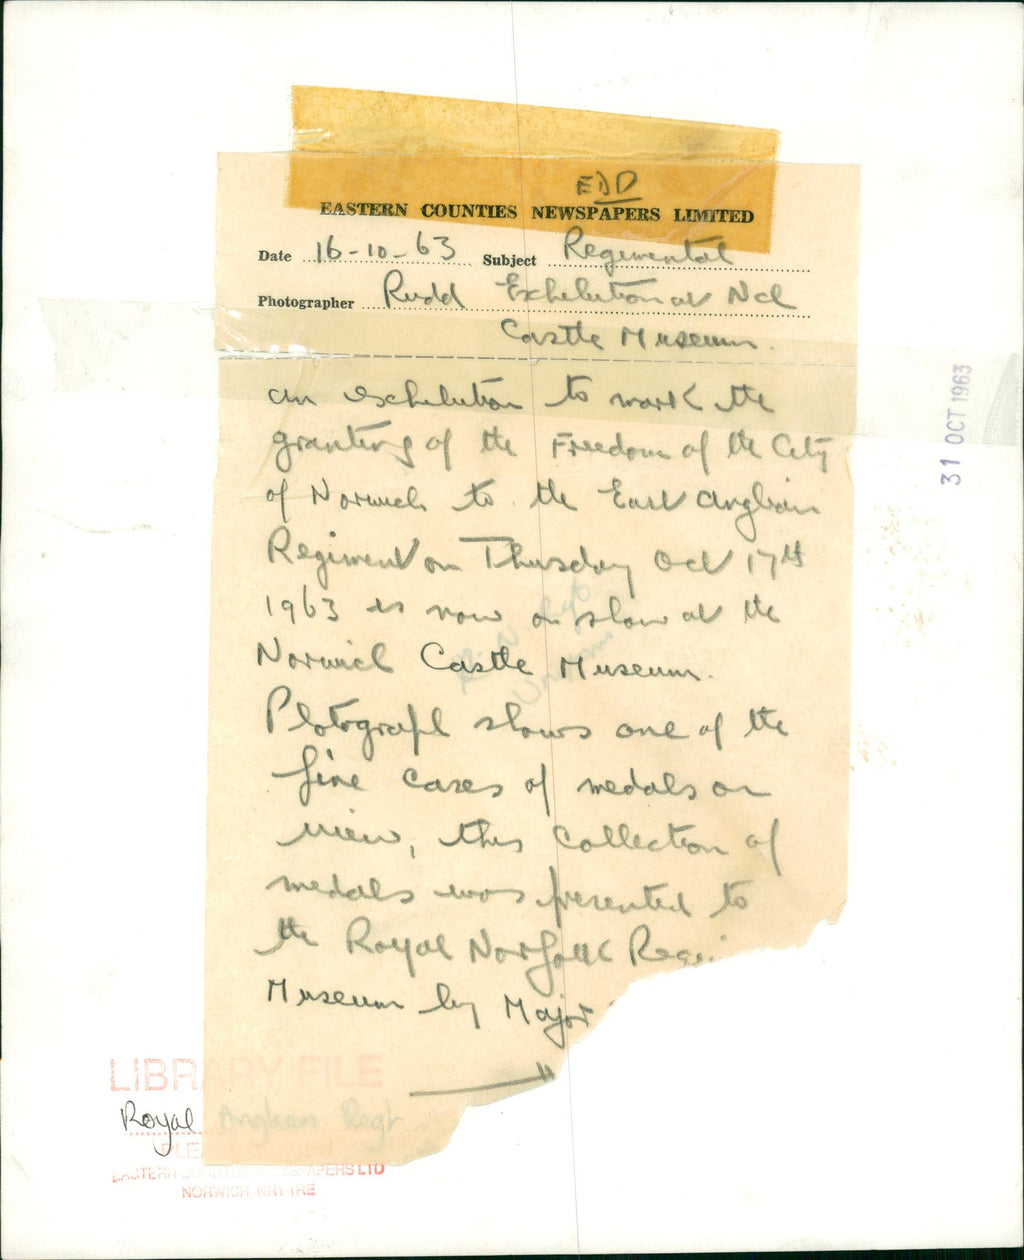 EDD
EASTERN COUNTIES NEWSPAPERS LIMITED
Date 16-10-63 Subject Regimental
Photographer Rudd Exhibition at Ncl
Castle Museum.
an exhibition to mark the
granting of the Freedom of the City
of Norwich to the East Anglian
Regiment on Thursday Oct 17th
1963 is now on show at the
Norwich Castle Museum.
Photograph shows one of the
fine cases of medals on
view, this collection of
medals was presented to
the Royal Norfolk Regi
Museum by Major
31 OCT 1963
LIBRARY FILE
Royal Anglian Regt
PLEA
EASTERN COUNTIES NEWSPAPERS LTD
NORWICH NR1 1RE